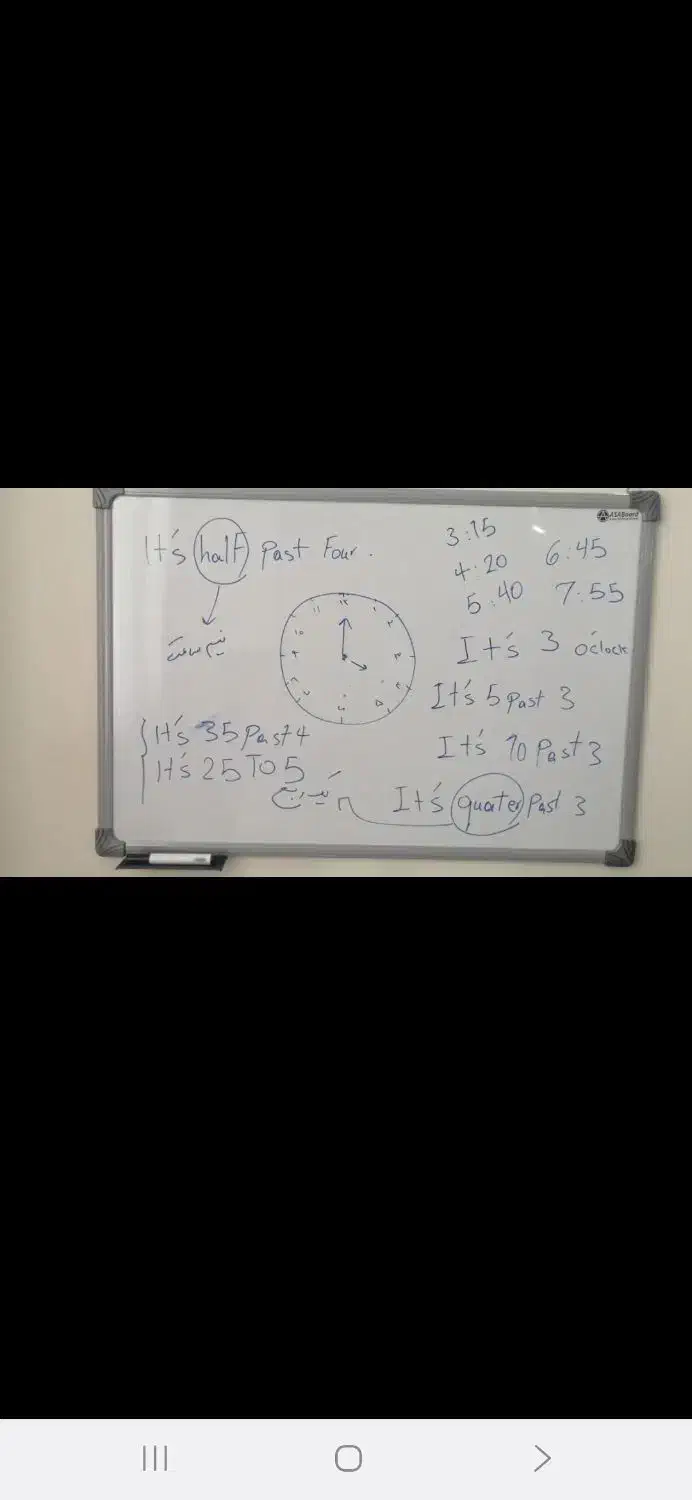 It's half past Four.
نیم ساعت
3:15
4:20
5:40
6:45
7:55
ASABoard
۱۲
۱
۲
۳
۴
۵
۶
۷
۸
۹
۱۰
۱۱
It's 3 o'clock
It's 5 past 3
It's 10 Past 3
It's quater Past 3
یک ربع
It's 35 Past 4
It's 25 To 5